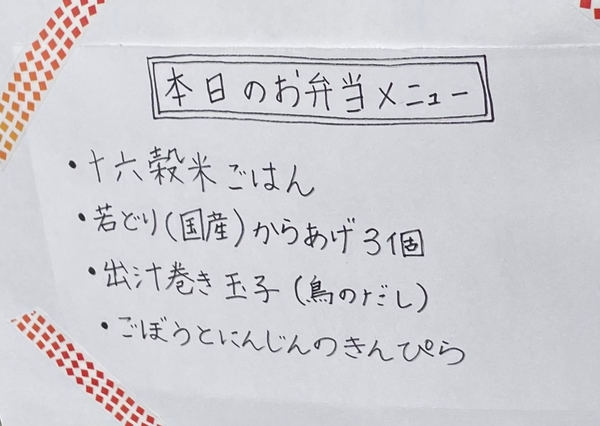 本日のお弁当メニュー
・十六穀米ごはん
・若どり(国産)からあげ3個
・出汁巻き玉子(鳥のだし)
・ごぼうとにんじんのきんぴら